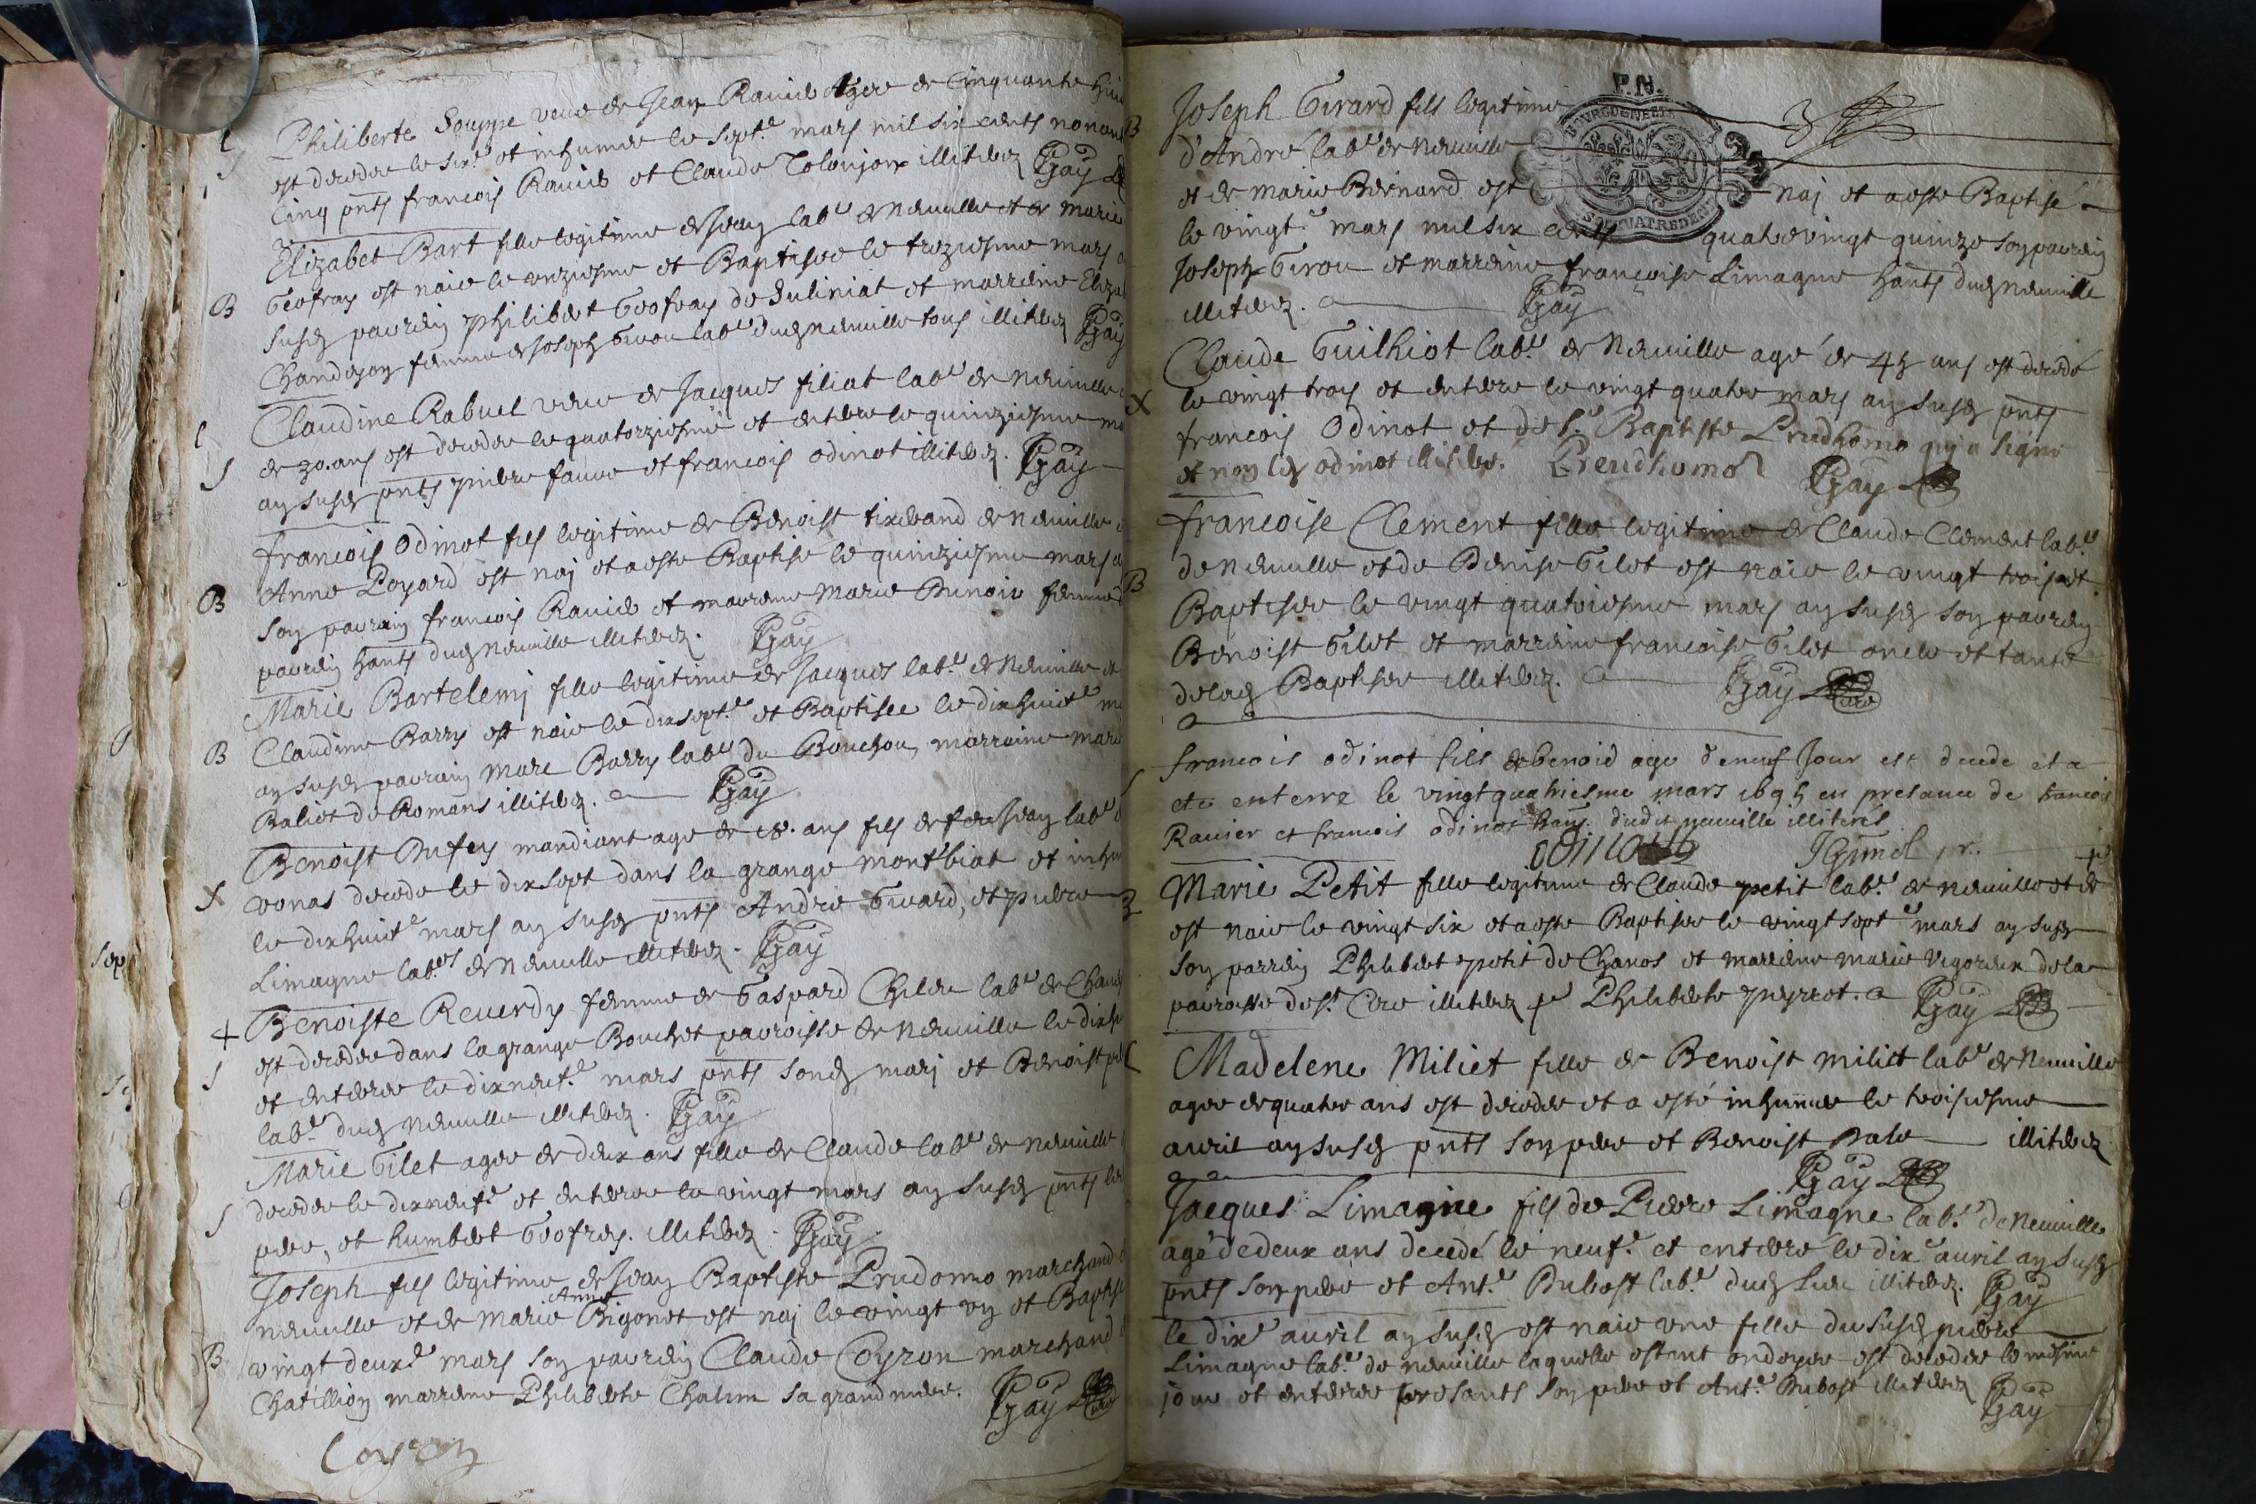 Philiberte Souppe veue de Jean Ravier Agee de Cinquante huit
est decedee le six.e et inhumee le sept.e mars mil six cents nonant
Cinq pnts francois Ravier et Claude Tolonjon illiterez PGay
Elizabet Bart fille legitime de Jean lab.r de Neuville et de marie
Geofray est naie le onziesme et Baptisee le treziesme mars
susd parrein philibert Geofray de Suliniat et marreine Eliza
Chandejon femme de Joseph Girou lab.r dud neuville tous illiterez PGay
Claudine Rabuel veue de Jacques filiat lab.r de Neuville
de 30. ans est decedee le quatorziesme et enterree le quinziesme
an susd pnts pierre faure et francois odinot illiterez. PGay
francois Odinot fils legitime de Benoist tixerand de Neuville
Anne Poyard est naj et a este Baptise le quinziesme mars
son parrain francois Ravier et marreine Marie Munoir femme
parrein hants dud Neuville illiterez. PGay
Marie Bartelemj fille legitime de Jacques lab.r de Neuville et
Claudine Barry est naie le dix sept.e et Baptisee le dix huit.e
an susd parrain Marc Barry lab.r du Bouchou, marraine marie
Baliot de Romans illiterez. PGay
Benoist Dufey mandiant age de 18. ans fils de feu Jean lab.r
vonas decede le dix sept dans la grange montbiat et inhu
le dix huit.e mars an susd pnts Andre Girard, et pierre
Limagne lab.rs de Neuville illiterez. PGay
Benoiste Reverdy femme de Gaspard Chilou lab.r de
est decedee dans la grange Bouchet parroisse de Neuville le dix
et enterree le dix neuf.e mars pnts sond marj et Benoist
lab.r dud Neuville illiterez. PGay
Marie Gilet agee de deux ans fille de Claude lab.r de Neuville
decedee le dix neuf.e et enterree le vingt mars an susd pnts
pere, et humbert Geofrey. illiterez. PGay
Joseph fils legitime de Jean Baptiste Prudomo marchand
neuville et de Marie Anne Bigonet est naj le vingt un et Baptise
vingt deux.e mars son parrein Claude Coyron marchand
Chatillion marreine Philiberte Chalim sa grand mere. PGay curé
Coyron
P.N.
BOURGOGNE ET
SOL QUATRE DEN
Joseph Girard fils legitime
d'Andre lab.r de Neuville
et de marie Bernard est naj et a este Baptisé
le vingt.e mars mil six cents quatrevingt quinze son parrein
Joseph Girou et marreine francoise Limagne hants dud neuville
illiterez. PGay
Claude Guilhiot lab.r de Neuville agé de 45 ans est decedé
le vingt trois et enterre le vingt quatre mars an susd pnts
francois Odinot et de S.r Baptiste Prudhomo qui a signé
et non led odinot illitere. Preudhomo PGay
francoise Clement fille legitime de Claude Clement lab.r
de Neuville et de Denise Gilet est naie le vingt trois et
Baptisee le vingt quatriesme mars an susd son parrein
Benoist Gilet et marreine francoise Gilet oncle et tante
de lad Baptisee illiterez. PGay curé
francois odinot fils de benoid age de neuf Jour est decede et a
ete enterre le vingt quatriesme mars 1695 en presance de francois
Ravier et francois odinot hants dudit neuville illiterés
Marie Petit fille legitime de Claude petit lab.r de neuville et de
est naie le vingt six et a este Baptisee le vingt sept.e mars an susd
son parrein Philibert petit de Chanos et marreine marie Vigorieux de la
parroisse de S.t Cire illiterez Philiberte peyrrot. PGay
Madelene Miliet fille de Benoist miliet lab.r de Neuville
agee de quatre ans est decedee et a esté inhumee le troisiesme
avril an susd pnts son pere et Benoist Bale illiterez
PGay
Jacques Limagne fils de Pierre Limagne lab.r de Neuville
agé de deux ans decedé le neuf.e et enterré le dix.e avril an susd
pnts son pere et Ant.e Dubost lab.r dud lieu illiterez. PGay
le dix.e avril an susd est naie une fille du susd pierre
Limagne lab.r de neuville laquelle estant ondoyee est decedee le mesme
jour et enterree presants son pere et Ant.e Dubost illiterez PGay